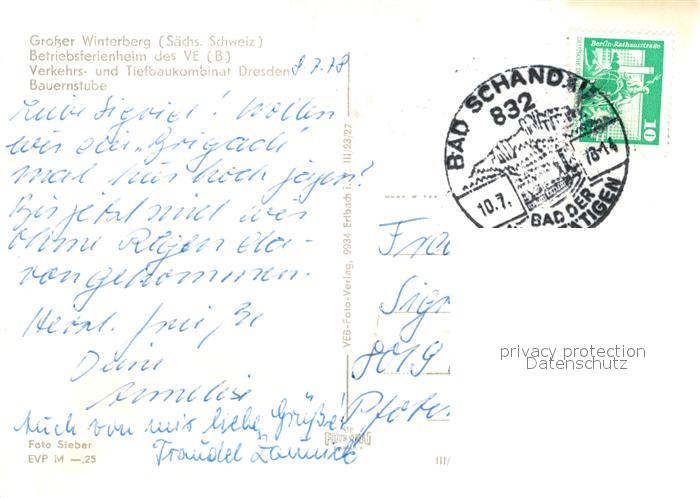 Großer Winterberg (Sächs. Schweiz)
Betriebsferienheim des VE (B)
Verkehrs- und Tiefbaukombinat Dresden
Bauernstube
8.7.78
Liebe Sigrid! Wollen
wir die „Brigade"
mal hier hoch jagen?
Bis jetzt sind wir
ohne Regen da-
vongekommen.
Herzl. Grüße
Deine
Annelise
Auch von mir liebe Grüße!
Traudel
Foto Sieber
EVP M —,25
VEB-Foto-Verlag, 9934 Erlbach i. V. III/23/27
BAD SCHANDAU
832
10.7.
78-14
BAD DER
Berlin-Rathausstraße
10
8019
privacy protection
Datenschutz
III/